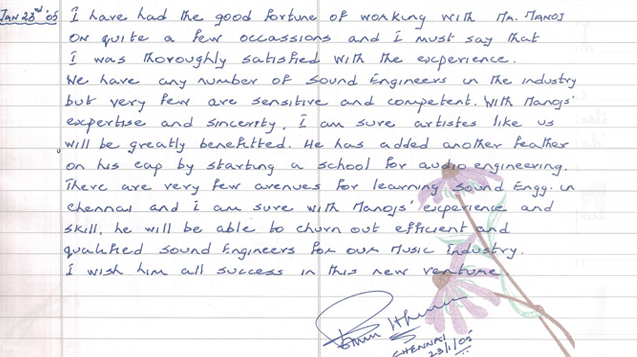 JAN 23rd '05 I have had the good fortune of working with Mr. Manoj
on quite a few occassions and I must say that
I was thoroughly satisfied with the experience.
We have any number of Sound Engineers in the industry
but very few are sensitive and competent. With Manojs'
expertise and sincerity, I am sure artistes like us
will be greatly benefitted. He has added another feather
on his cap by starting a school for audio engineering.
There are very few avenues for learning Sound Engg. in
Chennai and I am sure with Manojs' experience and
skill, he will be able to churn out efficient and
qualified Sound Engineers for our Music Industry.
I wish him all success in this new venture.
CHENNAI
23/1/05